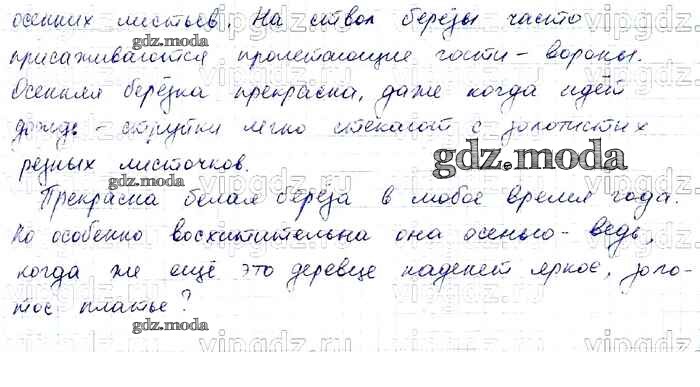 осенних листьев. На ствол берёзы часто
присаживаются пролетающие гости - вороны.
Осенняя берёзка прекрасна, даже когда идёт
дождь - струйки легко стекают с золотистых
резных листочков.
Прекрасна белая берёза в любое время года.
Но особенно восхитительна она осенью - ведь,
когда же ещё это деревце наденет яркое, золо-
тое платье?
gdz.moda
gdz.moda
gdz.moda
gdz.moda
vipgdz.ru